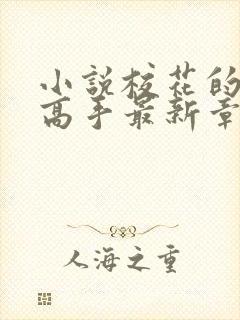 小說校花的
高手最新章
人海之重